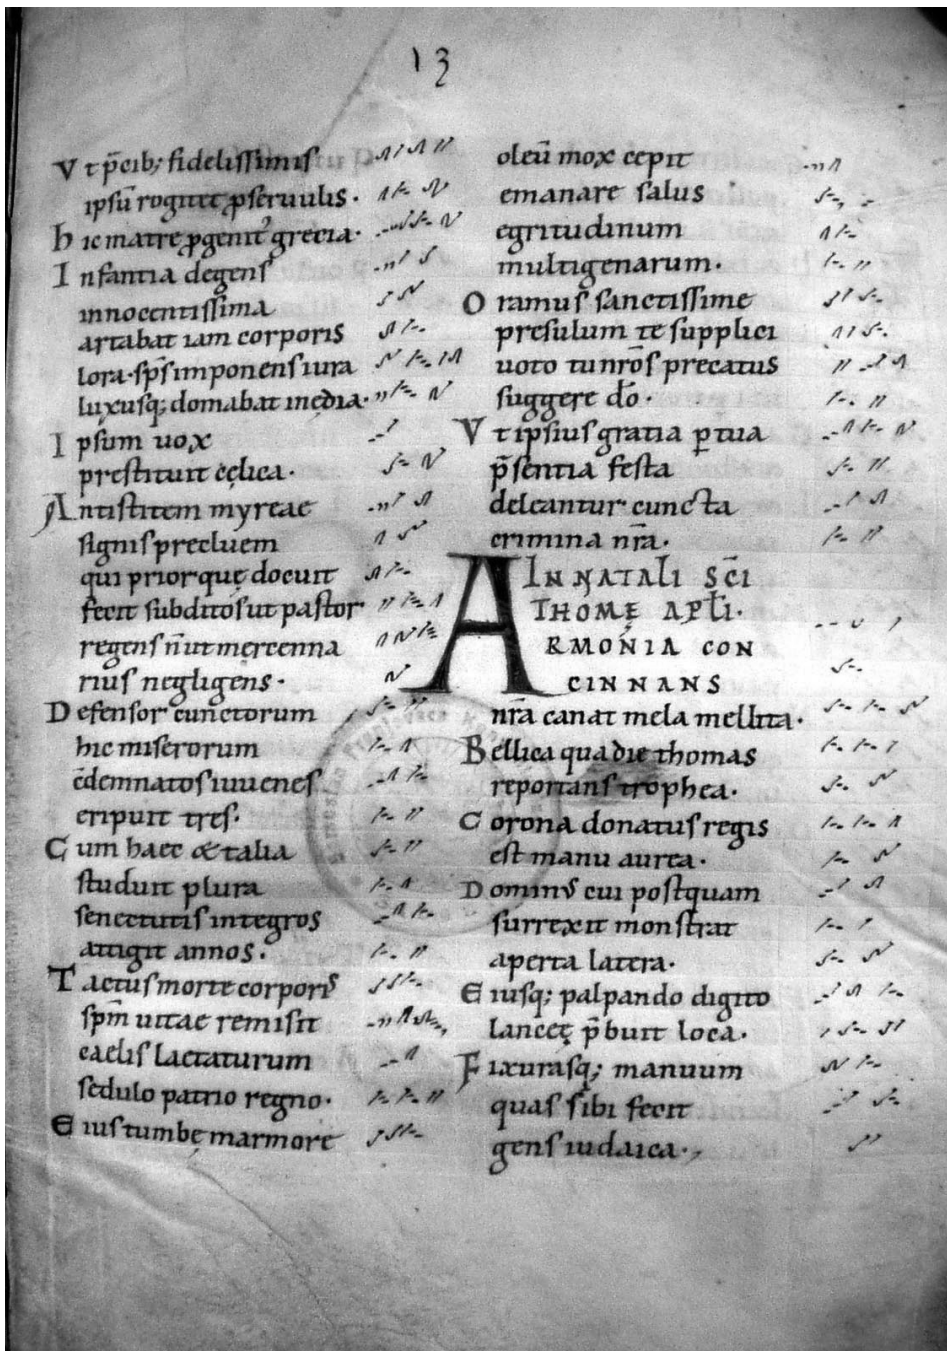 13
Vt p̄cib; fidelissimis
ipsū rogitit ꝑseruulis.
hic matrę ꝓgenit᷒ grecia.
Infantia degens
innocentissima
artabat iam corporis
lora. sp̄s imponens iura
luxusq; domabat inędia.
Ipsum uox
prestituit cęlica.
Antistitem myreae
signis precluem
qui prior quę docuit
fecit subditos ut pastor
regens n̄ ut mercenna
rius negligens.
Defensor cunctorum
hic miserorum
c̄demnatos iuuenes
eripuit tres.
Cum haec & talia
studuit plura
senectutis integros
attigit annos.
Tactus morte corporis
sp̄m uitae remisit
caelis laetaturum
sedulo patrio regno.
Eius tumbę marmore
oleū mox cepit
emanare salus
egritudinum
multigenarum.
Oramus sanctissime
presulum te supplici
uoto tu nr̄os precatus
suggere do.
Vt ipsius gratia ꝑ tua
p̄sentia festa
deleantur cuncta
crimina nr̄a.
IN NATALI SC̄I
THOMĘ APLI.
ARMONIA CON
CINNANS
nr̄a canat mela mellita.
Bellica qua die thomas
reportans trophea.
Corona donatus regis
est manu aurea.
Dominus cui postquam
surrexit monstrat
aperta latera.
Eiusq; palpando digito
lanceę p̄buit loca.
Fixurasq; manuum
quas sibi fecit
gens iudaica.